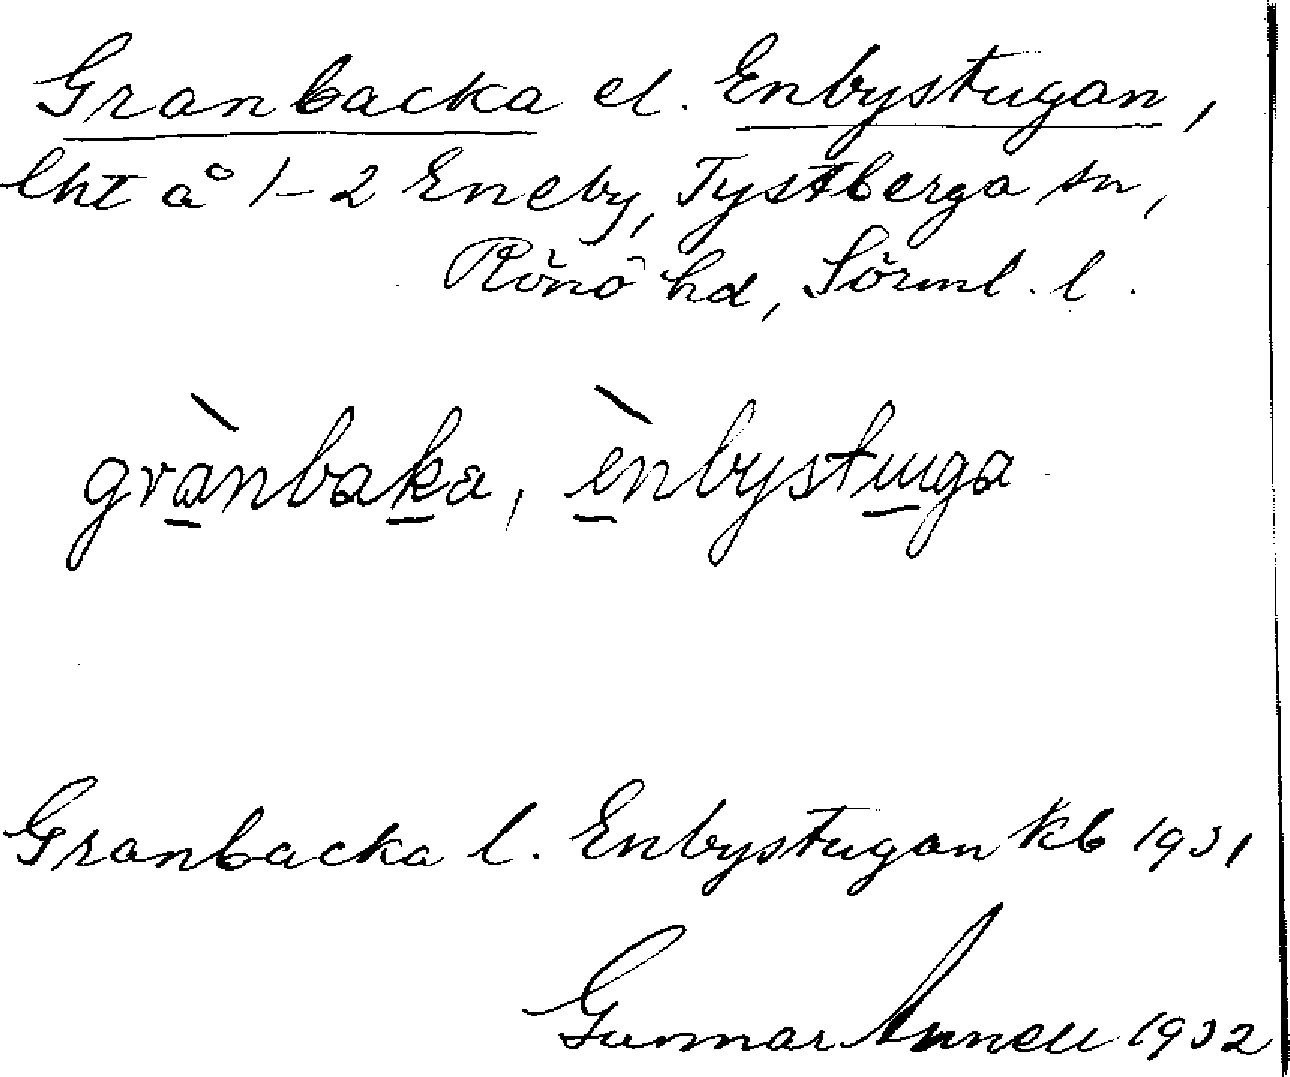 Granbacka el. Enbystugan,
lht å 1-2 Eneby, Tystberga sn,
Rönö hd, Sörml. l.
grànbaka, ènbystuga
Granbacka l. Enbystugan kb 1931
Gunnar Annell 1932